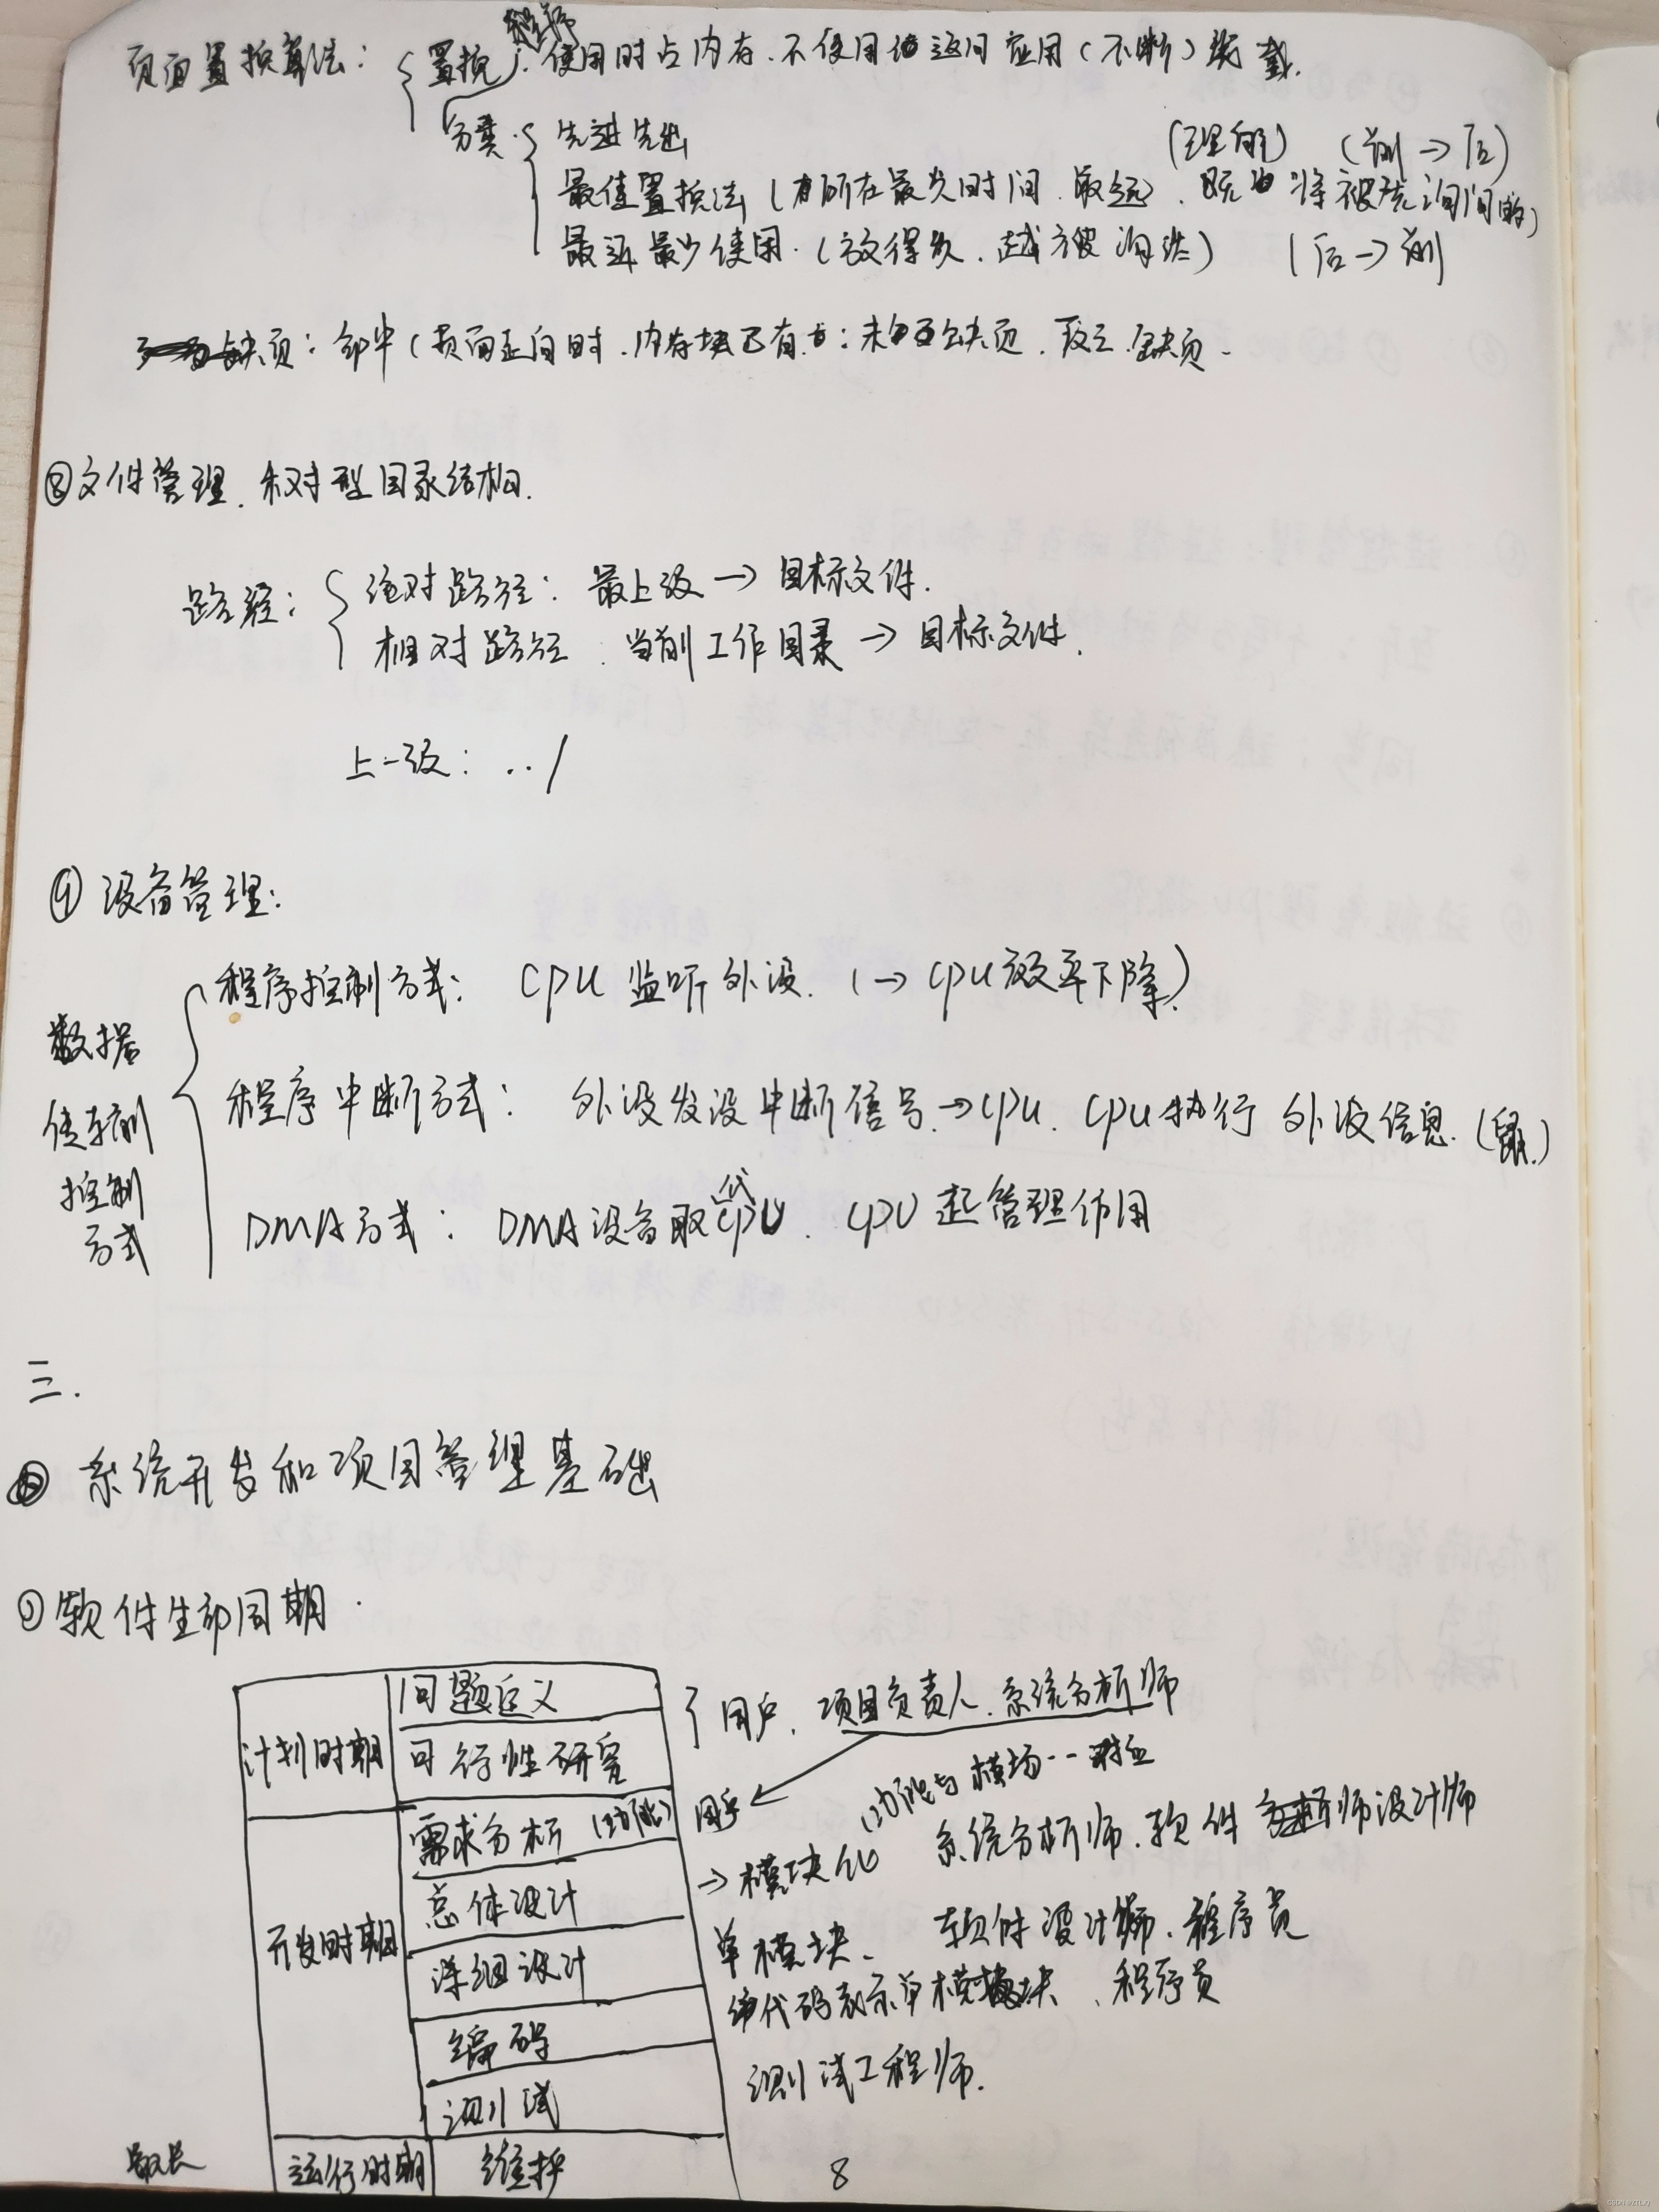 页面置换算法：
程序
置换：使用时占内存，不使用 返回应用（不断）装载.
分类： 先进先出
（理想） （前→后）
最佳置换法（ 所在最久时间、最远）， 将被访问的）
最近最少使用.（放得久，越被淘汰） （后→前）
缺页：命中（页面走向时，内存块已有）：未 缺页，反之.缺页.
③文件管理. 树型目录结构.
路径： 绝对路径：最上级→目标文件.
相对路径 . 当前工作目录→目标文件.
上一级： ../
④ 设备管理：
程序控制方式： CPU 监听外设. （→ CPU效率下降）
数据传输控制方式
程序中断方式： 外设发设中断信号.→CPU. CPU执行外设信息.
DMA方式： DMA设备取代CPU. CPU起管理作用
三.
系统开发和项目管理基础
①软件生命周期.
计划时期 问题定义 用户，项目负责人、系统分析师
可行性研究
功能与模块--对应
开发时期 需求分析（功能） 用户
总体设计 →模块化 系统分析师、软件 设计师
详细设计 单模块、 软件设计师、程序员
编码 代码表示单模块 、程序员
测试 测试工程师.
最长 运行时期 维护
8
CSDN @ZTLJQ